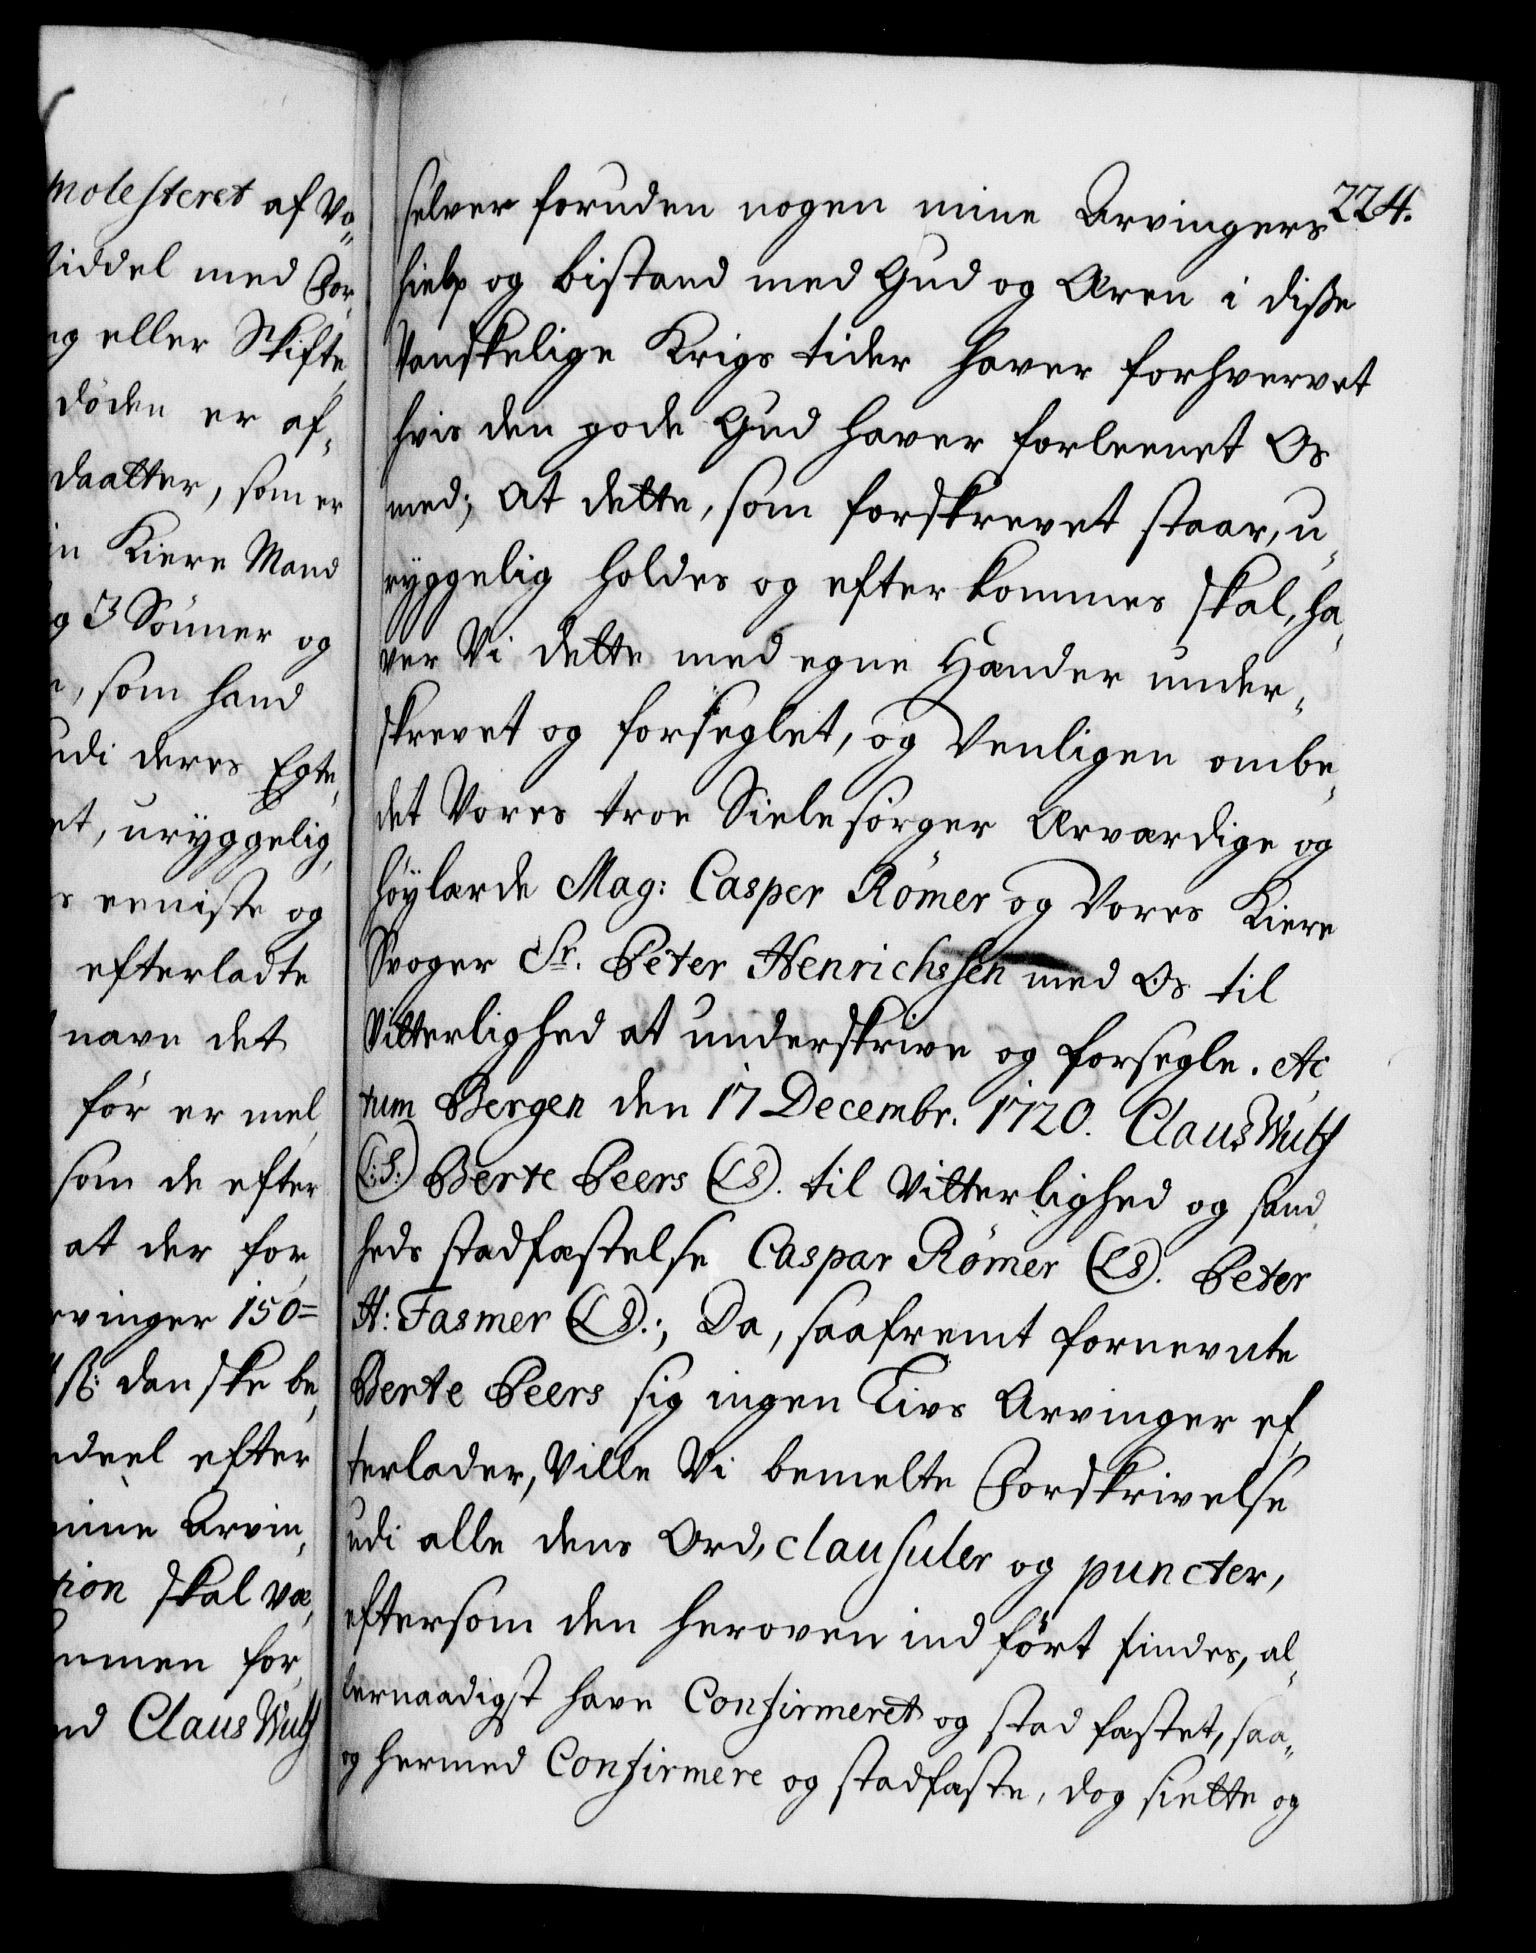 molesteret af Vo„
iddel med For„
ng eller Skifte,
döden er af„
daatter, som er
in Kiere Mand
g 3 Sönner og
, som hand
udi deres Egte„
et, uryggelig,
eeniste og
efterladte
navn det
för er mel„
som de efter
at der for„
rvinger 150=
ß: danske be„
deel efter
mine Arvin„
tion skal væ„
mmen for„
nd Claus Wulf
224.
selver foruden nogen mine Arvingers
hielp og bistand med Gud og Æren i diße
Vanskelige Krigs tider haver forhvervet
hvis den gode Gud haver forleenet Os
med; At dette, som forskrevet staar, u„
ryggelig holdes og efterkommes skal, ha„
ver Vi dette med egne Hænder under„
skrevet og forseglet, og Venligen ombe„
det Vores troe Sielesörger Ærværdige og
höylærde Mag: Casper Römer og Vores Kiere
Svoger Sr. Peter Henrichssen med Os til
Vitterlighed at underskrive og forsegle. Ac„
tum Bergen den 17 Decembr. 1720. Claus Wulf
(L:S:) Berte Peers (LS). til Vitterlighed og sand„
heds stadfæstelse Caspar Römer (LS). Peter
H: Fasmer (LS).; Da, saafremt fornevnte
Berte Peers sig ingen Livs Arvinger ef„
terlader, Ville Vi bemelte Forskrivelse
udi alle dens Ord, clausuler og puncter,
eftersom den heroven indfört findes, al„
lernaadigst have Confirmeret og stadfæstet, saa„
og hermed Confirmere og stadfæste, dog siette og